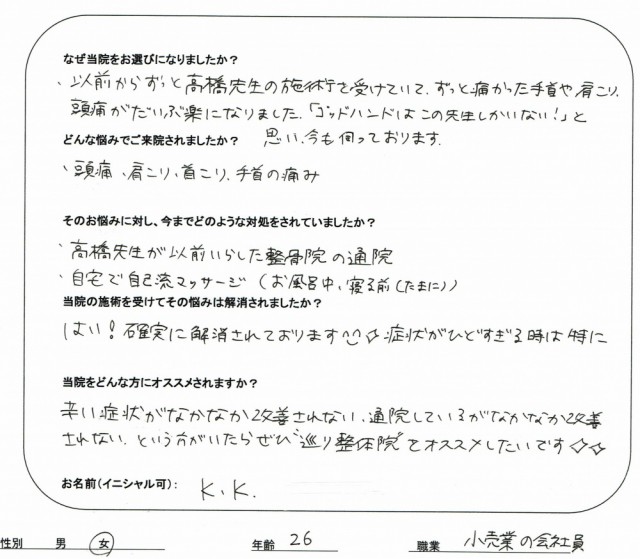 なぜ当院をお選びになりましたか？
、以前からずっと高橋先生の施術を受けていて、ずっと痛かった手首や肩こり、
頭痛がだいぶ楽になりました。「ゴッドハンドはこの先生しかいない！」と
どんな悩みでご来院されましたか？ 思い、今も伺っております。
、頭痛、肩こり、首こり、手首の痛み
そのお悩みに対し、今までどのような対処をされていましたか？
、高橋先生が以前いらした整骨院の通院
、自宅で自己流マッサージ（お風呂中、寝る前（たまに））
当院の施術を受けてその悩みは解消されましたか？
はい！確実に解消されております^^☆症状がひどすぎる時は特に
当院をどんな方にオススメされますか？
辛い症状がなかなか改善されない、通院しているがなかなか改善
されない、という方がいたらぜひ"巡り整体院"をオススメしたいです☆☆
お名前（イニシャル可）： K.K.
性別 男 女 年齢 26 職業 小売業の会社員